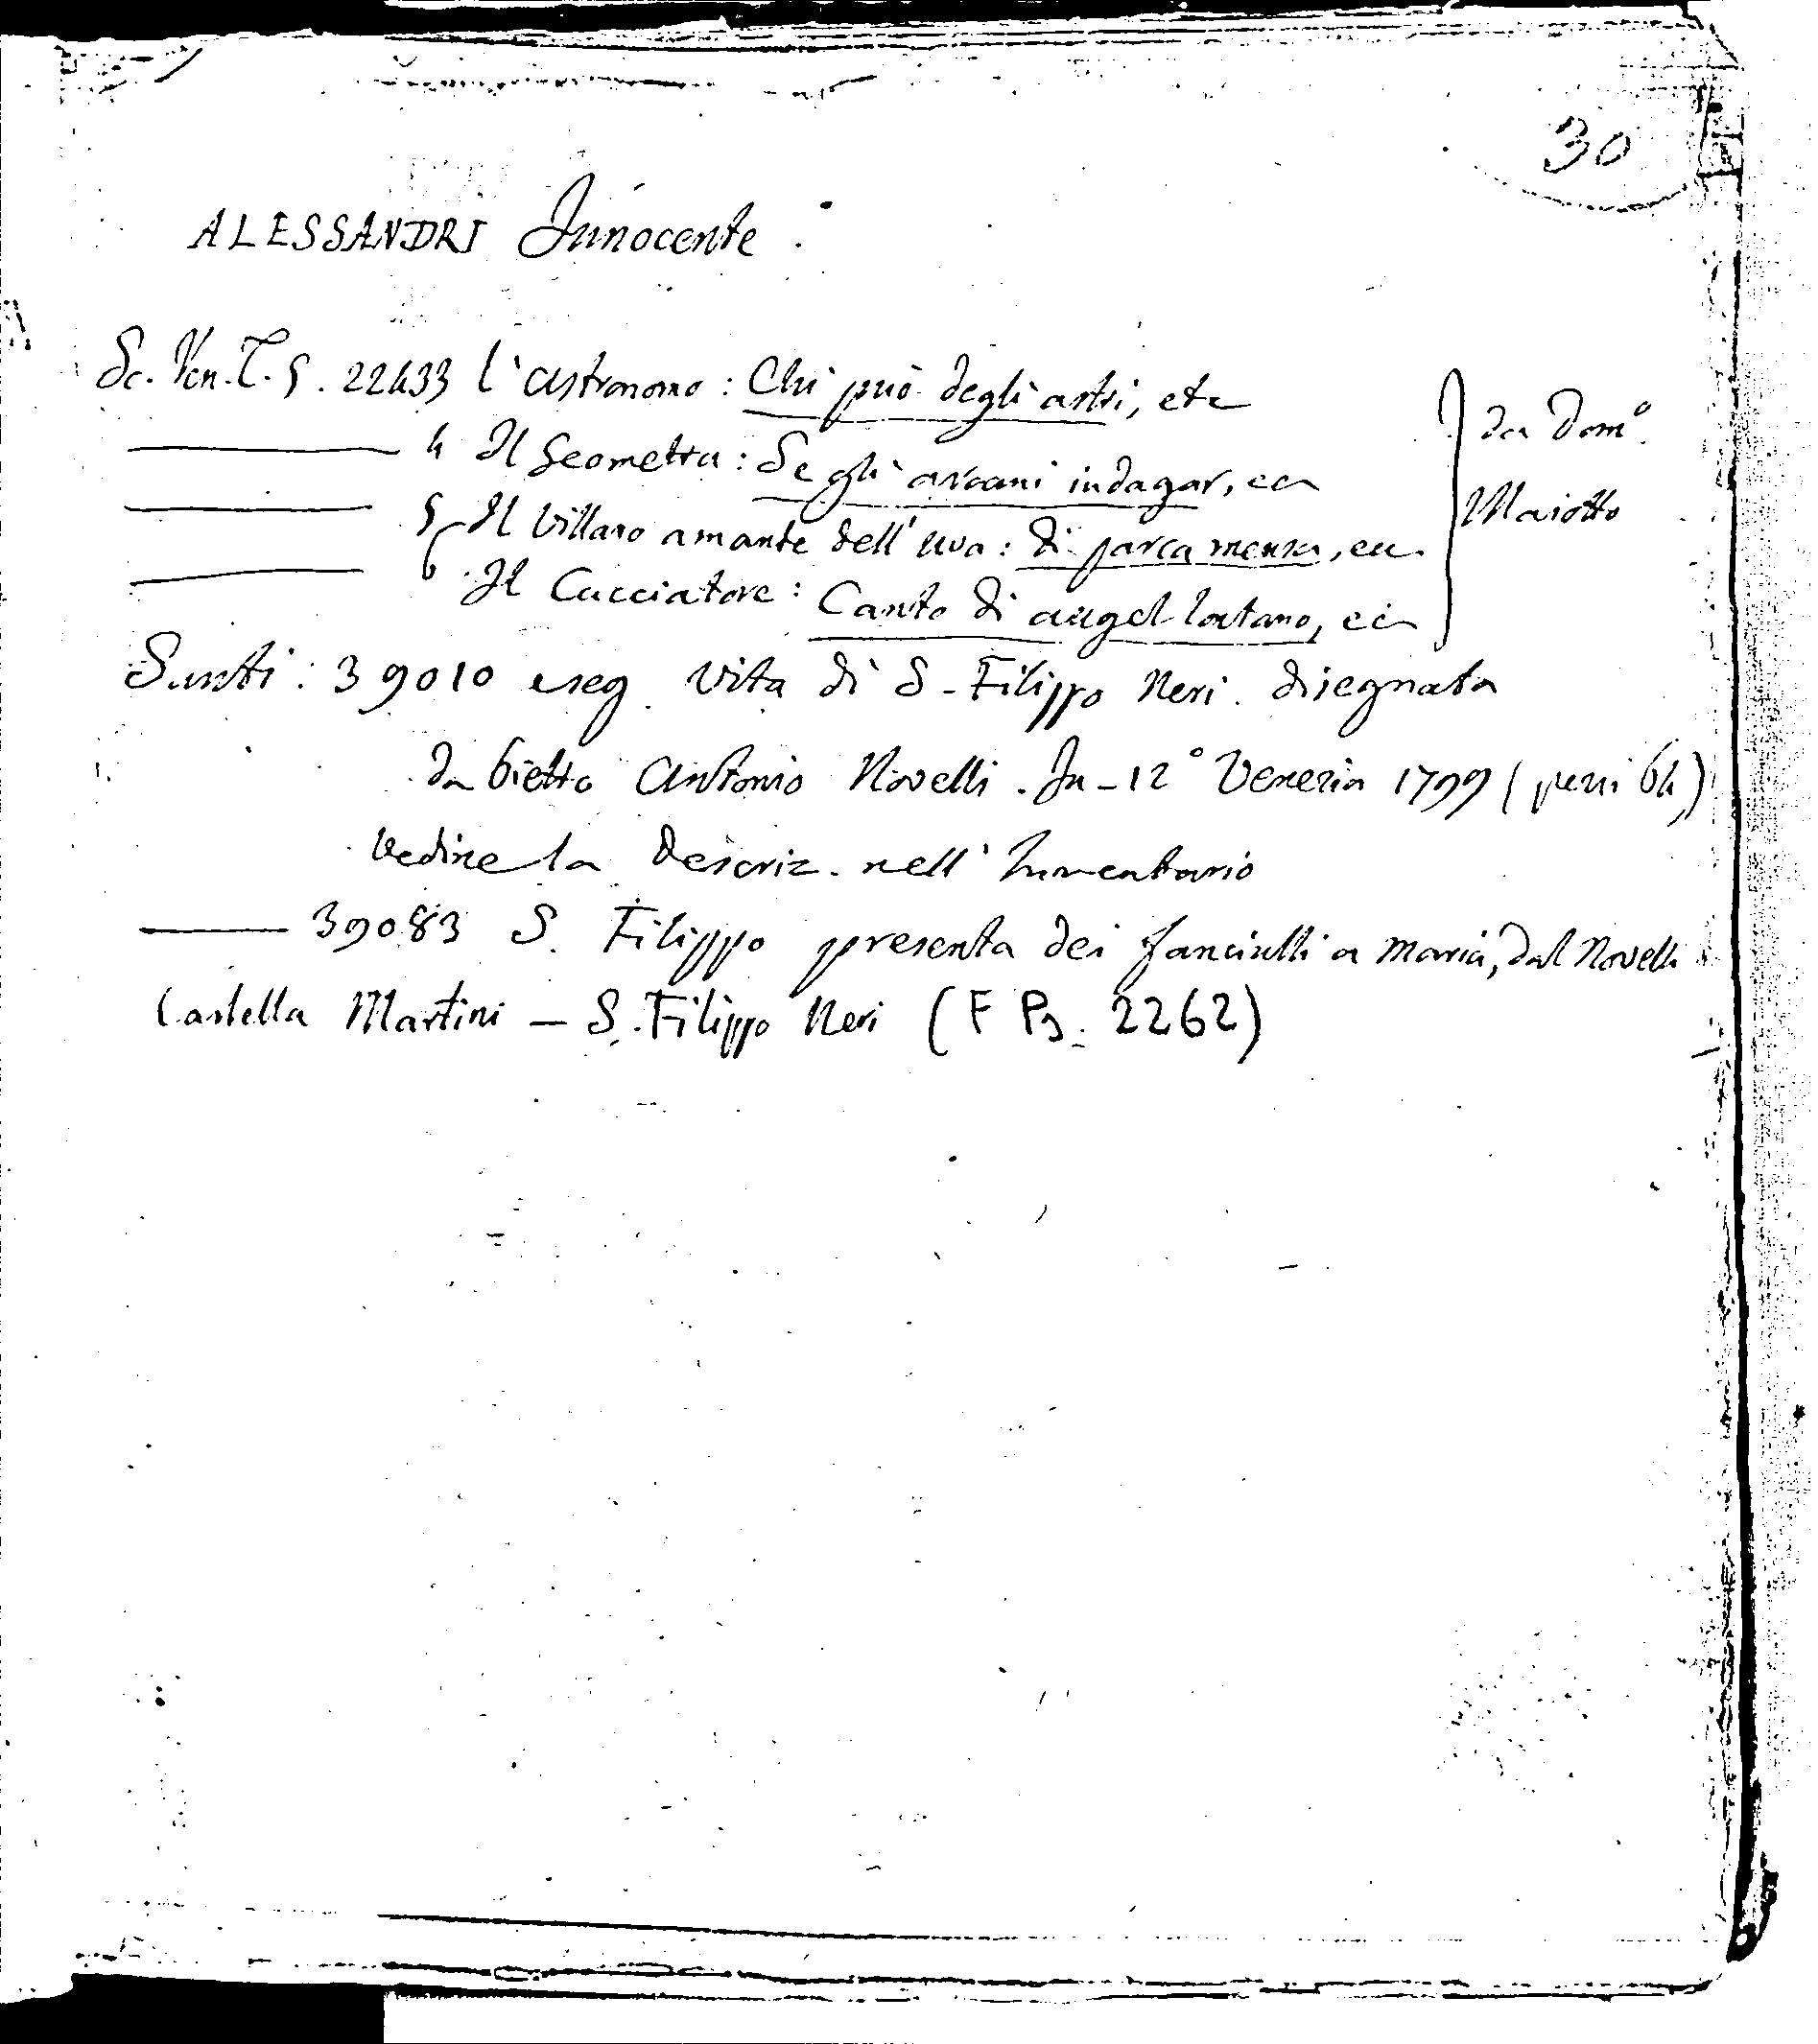 30
ALESSANDRI Innocente
Sc. Ven. T. 5. 22433 l'astronomo: Chi può degli astri, etc
4 Il Geometra: Se gli arcani indagar, ec
da Dom°.
Maiotto
5 Il Villano amante dell'uva: di parca mensa, ec.
6 Il Cacciatore: Canto di augel lontano, ec
Santi: 39010 e seg. Vita di S. Filippo Neri. disegnata
da Pietro Antonio Novelli. In-12° Venezia 1799 (pezzi 64)
Vedine la Descriz. nell'Inventario
39083 S. Filippo presenta dei fanciulli a Maria, dal Novelli
Cartella Martini - S. Filippo Neri (F P. 2262)